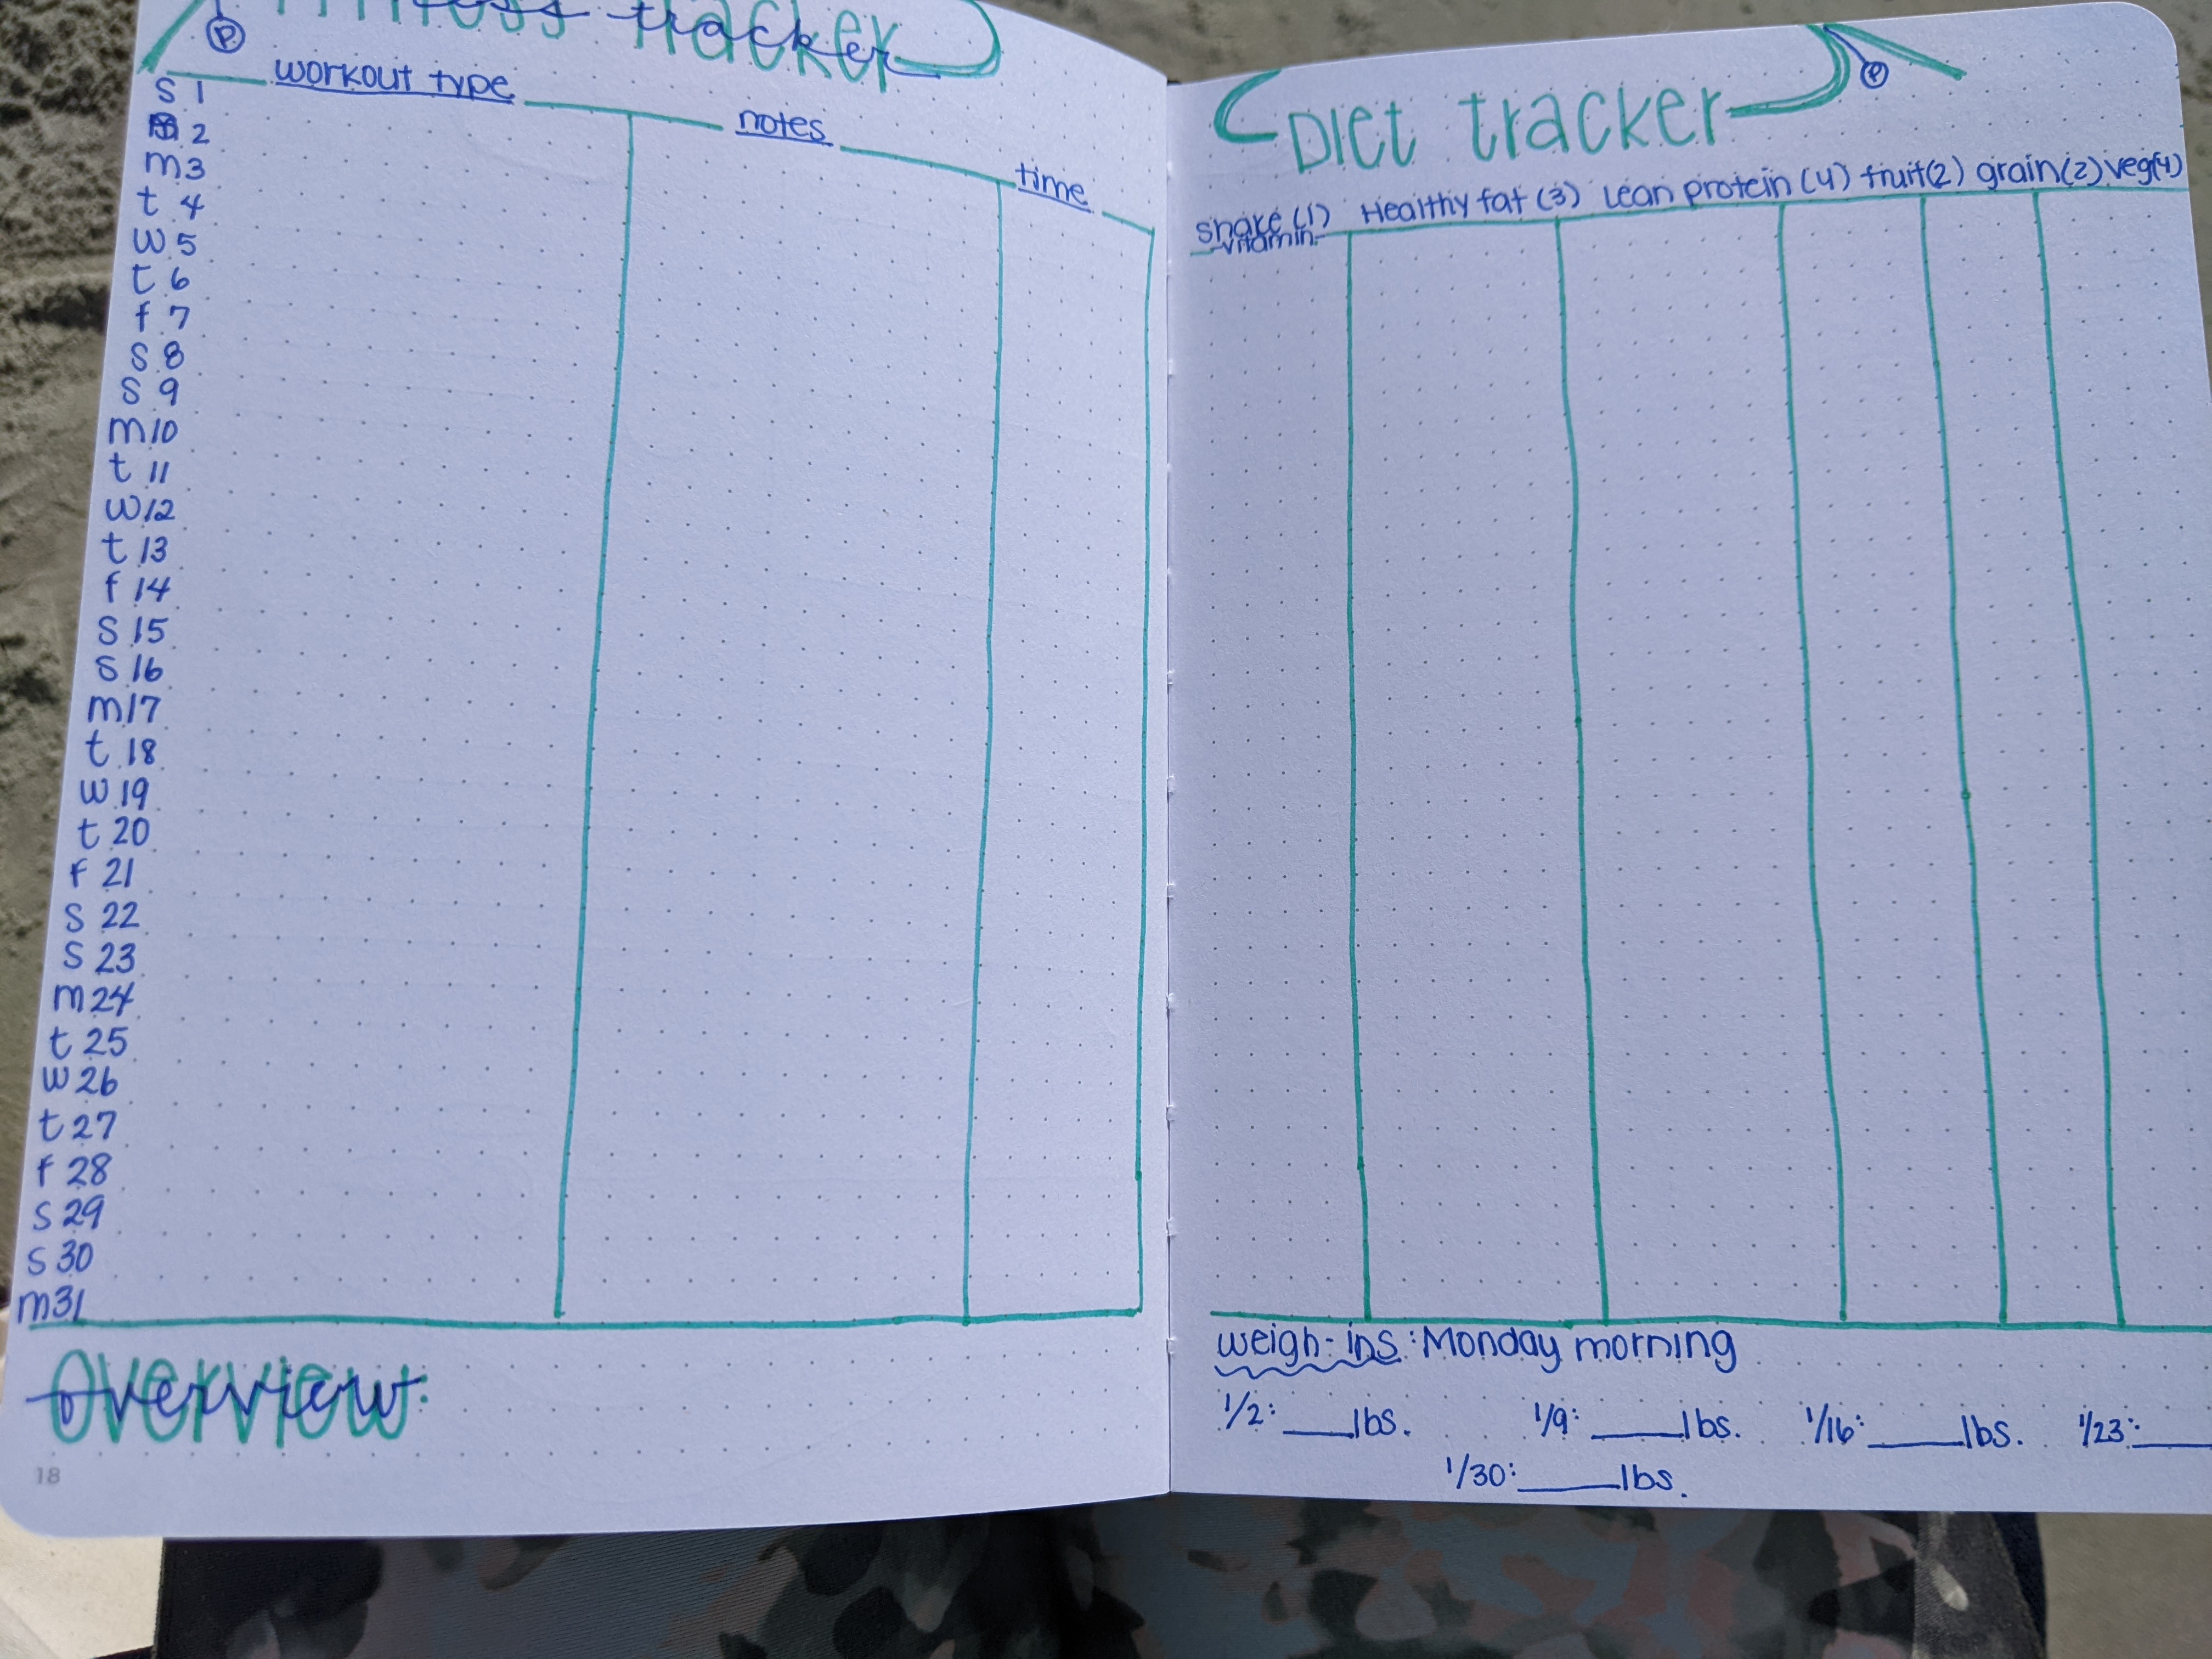 fitness tracker
P
workout type
notes
time
S 1
2
m 3
t 4
W 5
t 6
f 7
S 8
S 9
m 10
t 11
W 12
t 13
f 14
S 15
S 16
m 17
t 18
W 19
t 20
F 21
S 22
S 23
m 24
t 25
W 26
t 27
F 28
S 29
S 30
m 31
overview:
18
Diet tracker
P
shake (1) Healthy fat (3) Lean protein (4) fruit (2) grain (2) veg (4)
vitamin
weigh-ins: Monday morning
1/2: ___ lbs. 1/9: ___ lbs. 1/16: ___ lbs. 1/23: ___
1/30: ___ lbs.